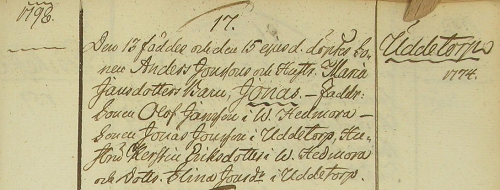 1798.
17.
Den 13 föddes och den 15 ejusd. döptes bo-
nen Anders Jonsons och Hustr. Maria
Jansdotters barn, Jonas. — Faddr.
bonen Olof Janson i W. Hedmora —
Sonen Jonas Jonson i Uddetorp, Hu-
Kerstin Eriksdotter i W. Hedmora
och Dottr. Stina Jonsdr i Uddetorp.
Uddetorp
1774.